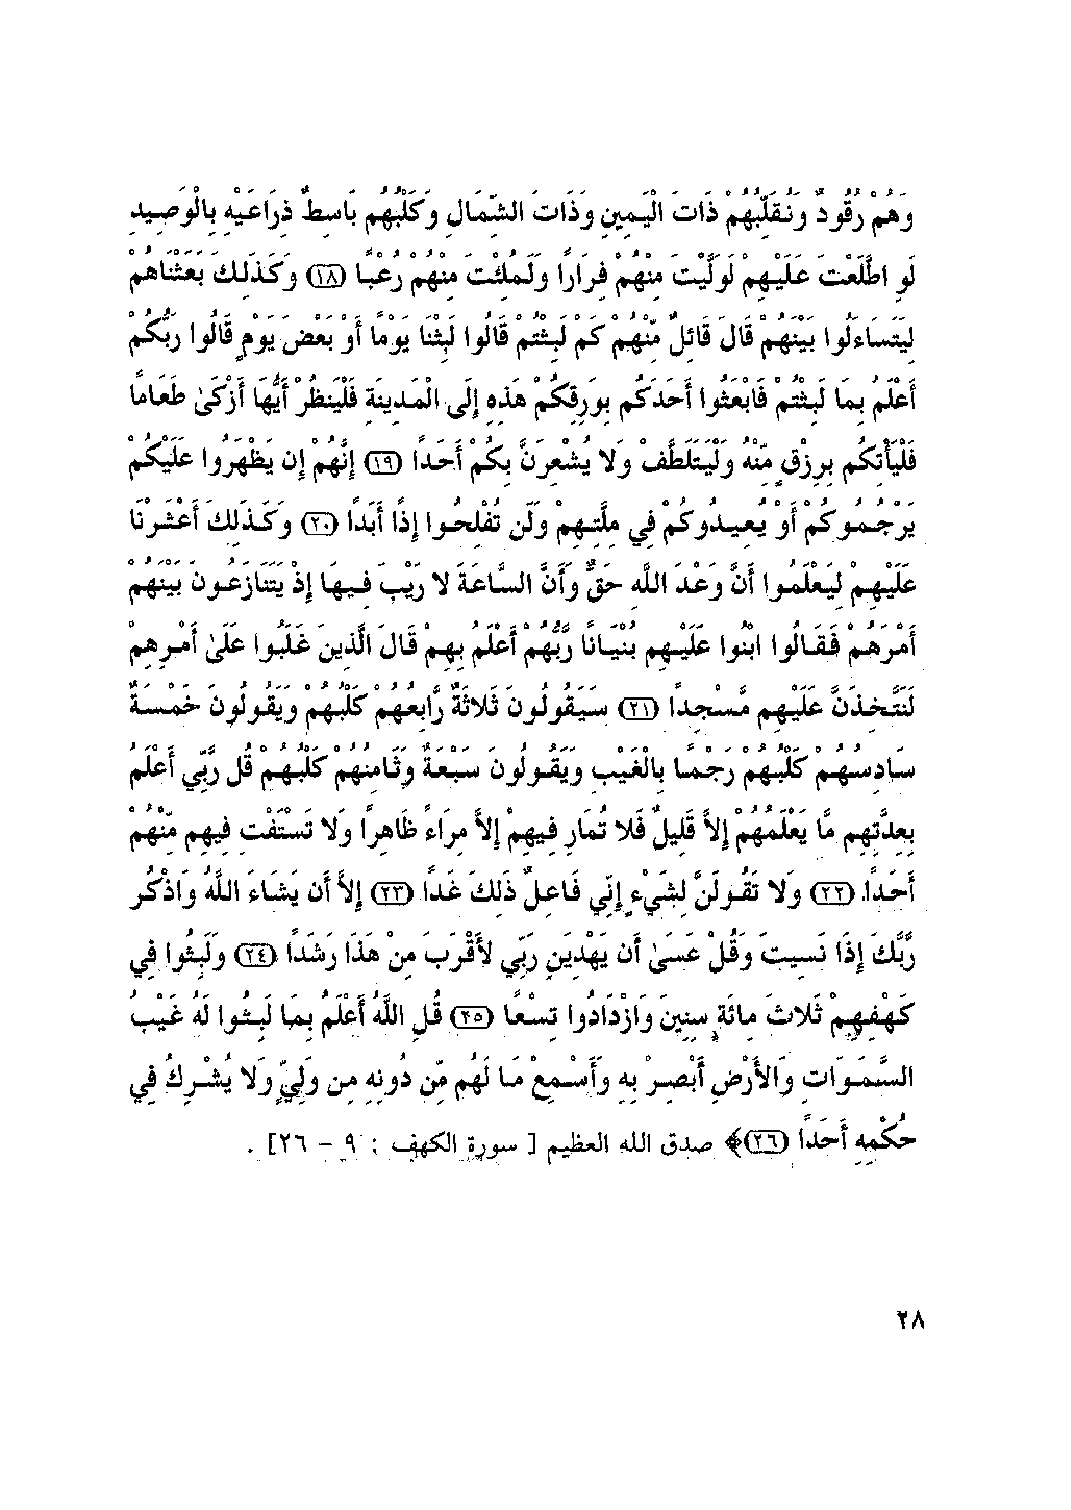 وَهُمْ رُقُودٌ وَنُقَلِّبُهُمْ ذَاتَ الْيَمِينِ وَذَاتَ الشِّمَالِ وَكَلْبُهُم بَاسِطٌ ذِرَاعَيْهِ بِالْوَصِيدِ
لَوِ اطَّلَعْتَ عَلَيْهِمْ لَوَلَّيْتَ مِنْهُمْ فِرَارًا وَلَمُلِئْتَ مِنْهُمْ رُعْبًا (١٨) وَكَذَلِكَ بَعَثْنَاهُمْ
لِيَتَسَاءَلُوا بَيْنَهُمْ قَالَ قَائِلٌ مِّنْهُمْ كَمْ لَبِثْتُمْ قَالُوا لَبِثْنَا يَوْمًا أَوْ بَعْضَ يَوْمٍ قَالُوا رَبُّكُمْ
أَعْلَمُ بِمَا لَبِثْتُمْ فَابْعَثُوا أَحَدَكُم بِوَرِقِكُمْ هَذِهِ إِلَى الْمَدِينَةِ فَلْيَنظُرْ أَيُّهَا أَزْكَىٰ طَعَامًا
فَلْيَأْتِكُم بِرِزْقٍ مِّنْهُ وَلْيَتَلَطَّفْ وَلا يُشْعِرَنَّ بِكُمْ أَحَدًا (١٩) إِنَّهُمْ إِن يَظْهَرُوا عَلَيْكُمْ
يَرْجُمُوكُمْ أَوْ يُعِيدُوكُمْ فِي مِلَّتِهِمْ وَلَن تُفْلِحُوا إِذًا أَبَدًا (٢٠) وَكَذَلِكَ أَعْثَرْنَا
عَلَيْهِمْ لِيَعْلَمُوا أَنَّ وَعْدَ اللَّهِ حَقٌّ وَأَنَّ السَّاعَةَ لا رَيْبَ فِيهَا إِذْ يَتَنَازَعُونَ بَيْنَهُمْ
أَمْرَهُمْ فَقَالُوا ابْنُوا عَلَيْهِم بُنْيَانًا رَّبُّهُمْ أَعْلَمُ بِهِمْ قَالَ الَّذِينَ غَلَبُوا عَلَىٰ أَمْرِهِمْ
لَنَتَّخِذَنَّ عَلَيْهِم مَّسْجِدًا (٢١) سَيَقُولُونَ ثَلاثَةٌ رَّابِعُهُمْ كَلْبُهُمْ وَيَقُولُونَ خَمْسَةٌ
سَادِسُهُمْ كَلْبُهُمْ رَجْمًا بِالْغَيْبِ وَيَقُولُونَ سَبْعَةٌ وَثَامِنُهُمْ كَلْبُهُمْ قُل رَّبِّي أَعْلَمُ
بِعِدَّتِهِم مَّا يَعْلَمُهُمْ إِلاَّ قَلِيلٌ فَلا تُمَارِ فِيهِمْ إِلاَّ مِرَاءً ظَاهِرًا وَلا تَسْتَفْتِ فِيهِم مِّنْهُمْ
أَحَدًا. (٢٢) وَلا تَقُولَنَّ لِشَيْءٍ إِنِّي فَاعِلٌ ذَلِكَ غَدًا (٢٣) إِلاَّ أَن يَشَاءَ اللَّهُ وَاذْكُر
رَّبَّكَ إِذَا نَسِيتَ وَقُلْ عَسَىٰ أَن يَهْدِيَنِ رَبِّي لأَقْرَبَ مِنْ هَذَا رَشَدًا (٢٤) وَلَبِثُوا فِي
كَهْفِهِمْ ثَلاثَ مِائَةٍ سِنِينَ وَازْدَادُوا تِسْعًا (٢٥) قُلِ اللَّهُ أَعْلَمُ بِمَا لَبِثُوا لَهُ غَيْبُ
السَّمَوَاتِ وَالأَرْضِ أَبْصِرْ بِهِ وَأَسْمِعْ مَا لَهُم مِّن دُونِهِ مِن وَلِيٍّ وَلا يُشْرِكُ فِي
حُكْمِهِ أَحَدًا (٢٦)﴾ صدق الله العظيم [ سورة الكهف : ٩ – ٢٦] .
٢٨